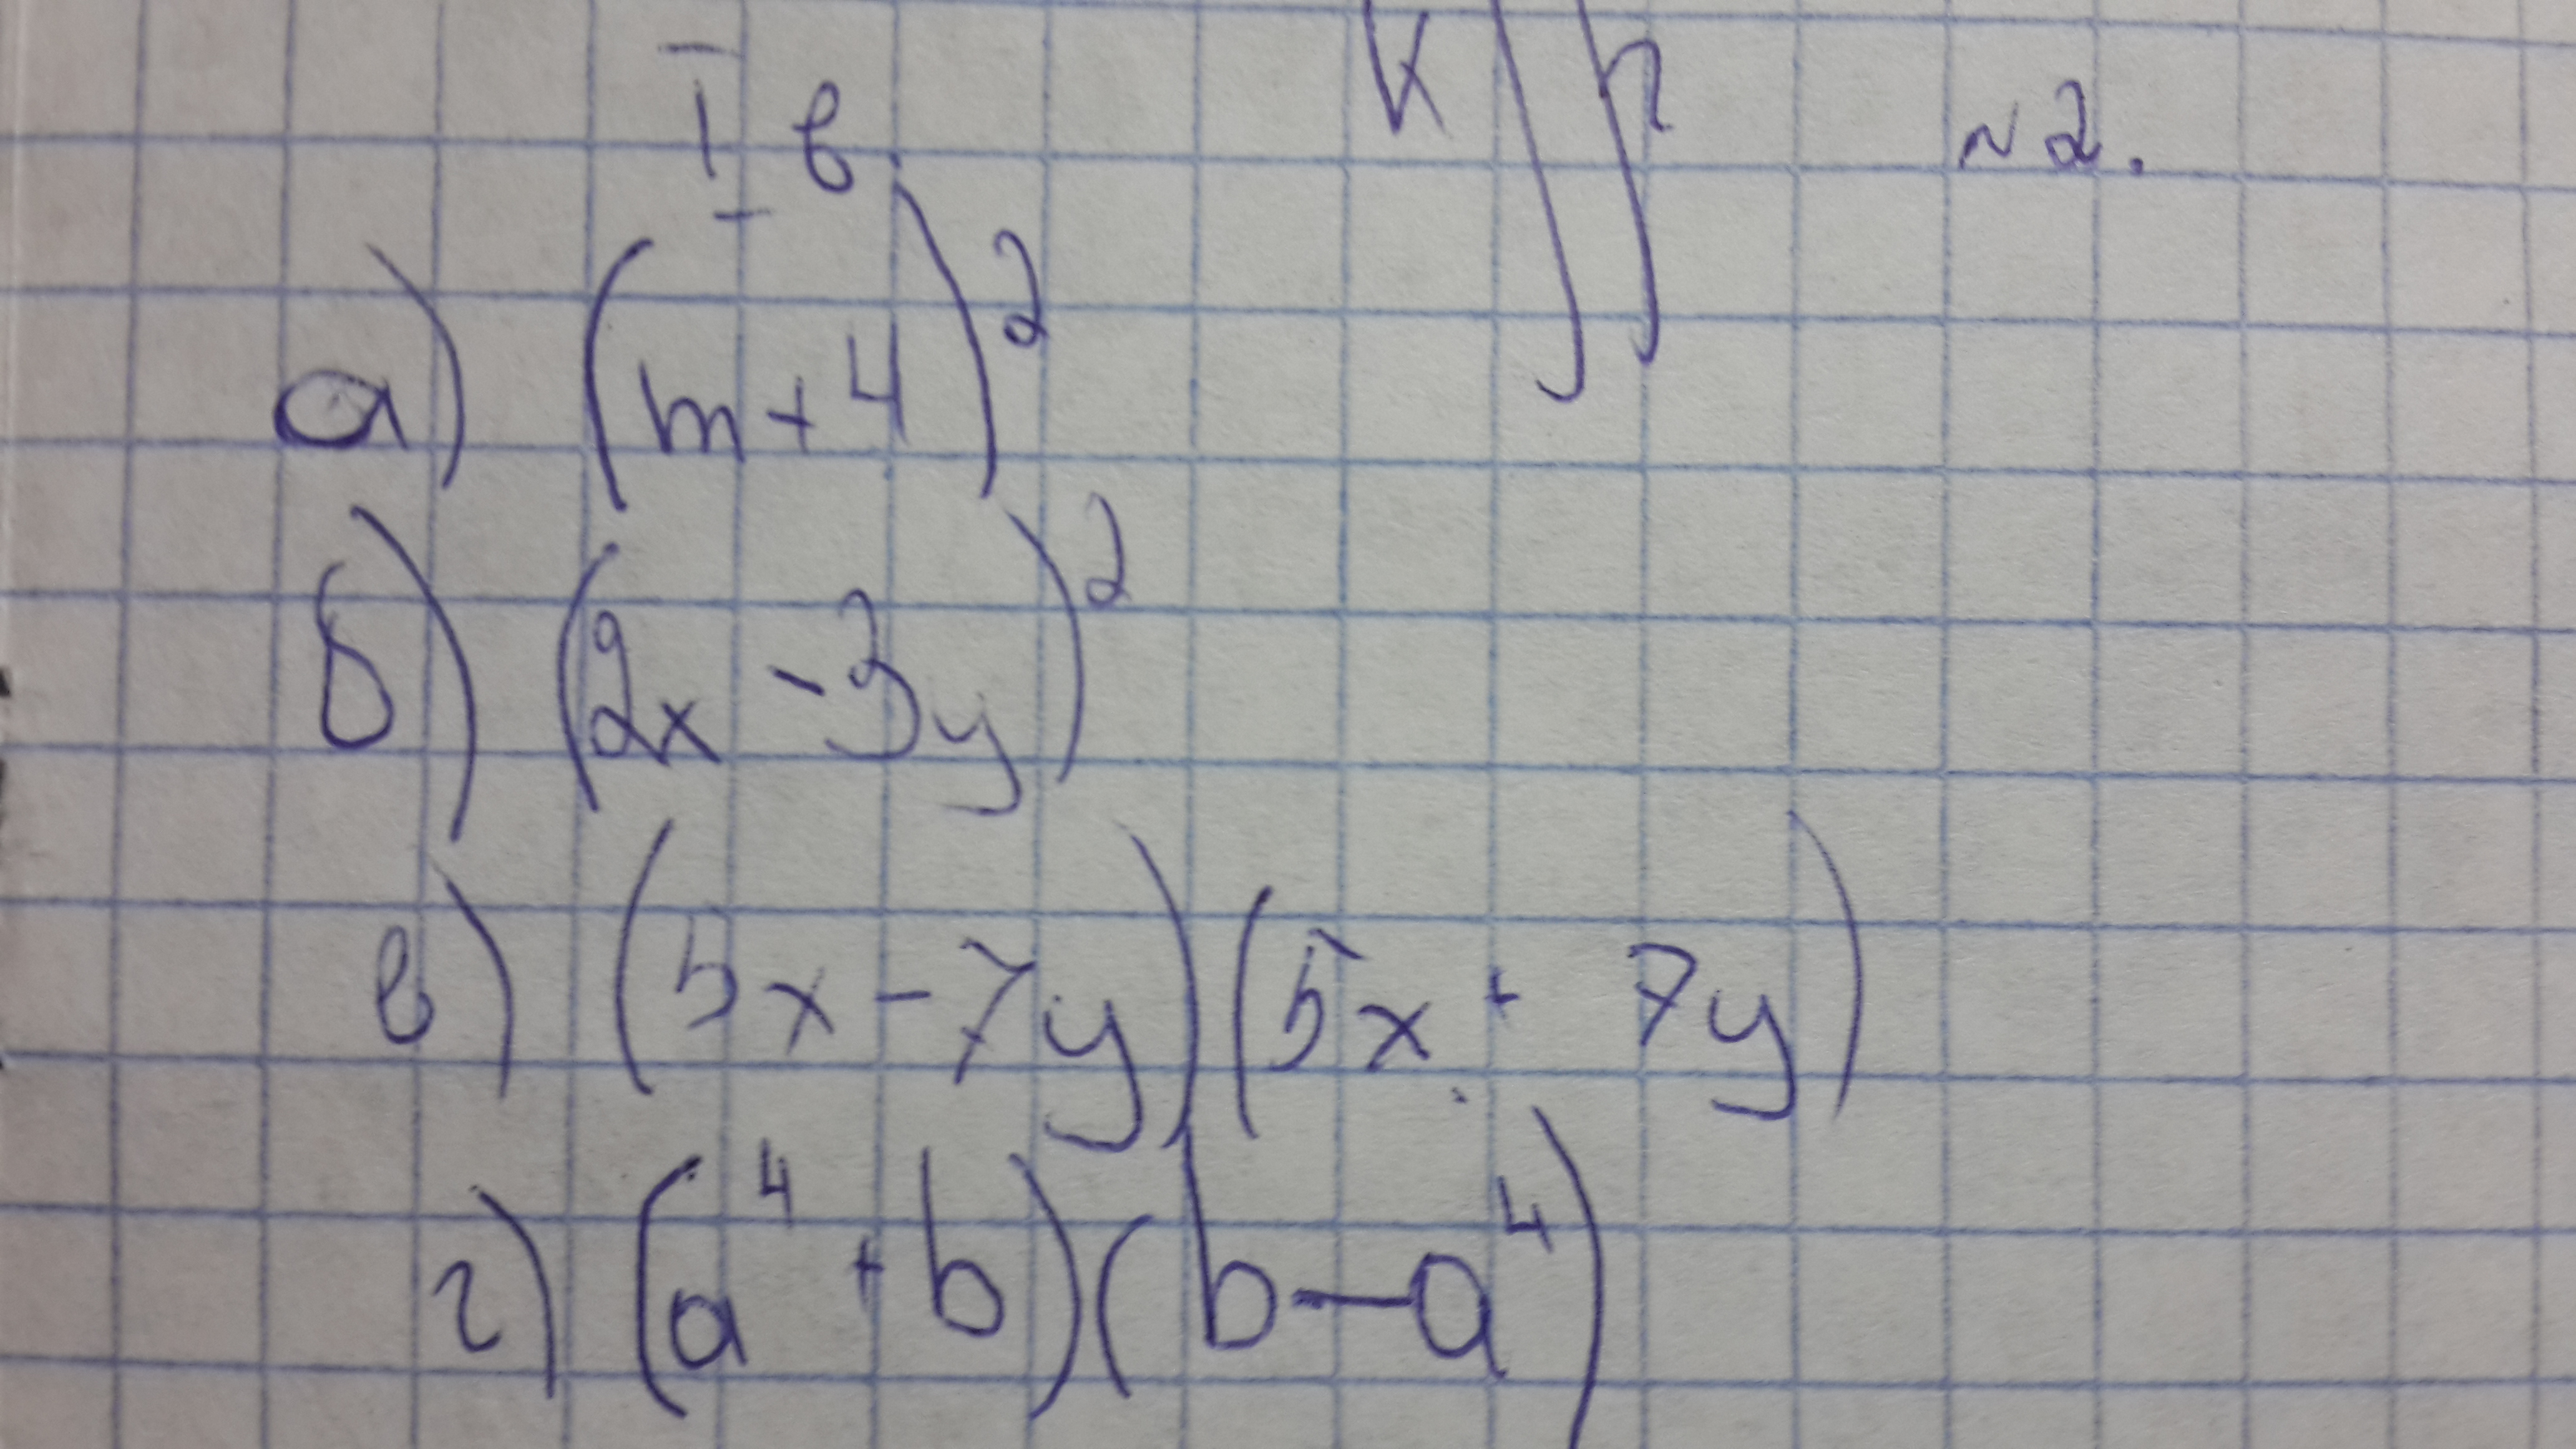 I в. К/р №2.
а) (m+4)²
б) (2x-3y)²
в) (5x-7y)(5x+7y)
г) (a⁴+b)(b-a⁴)